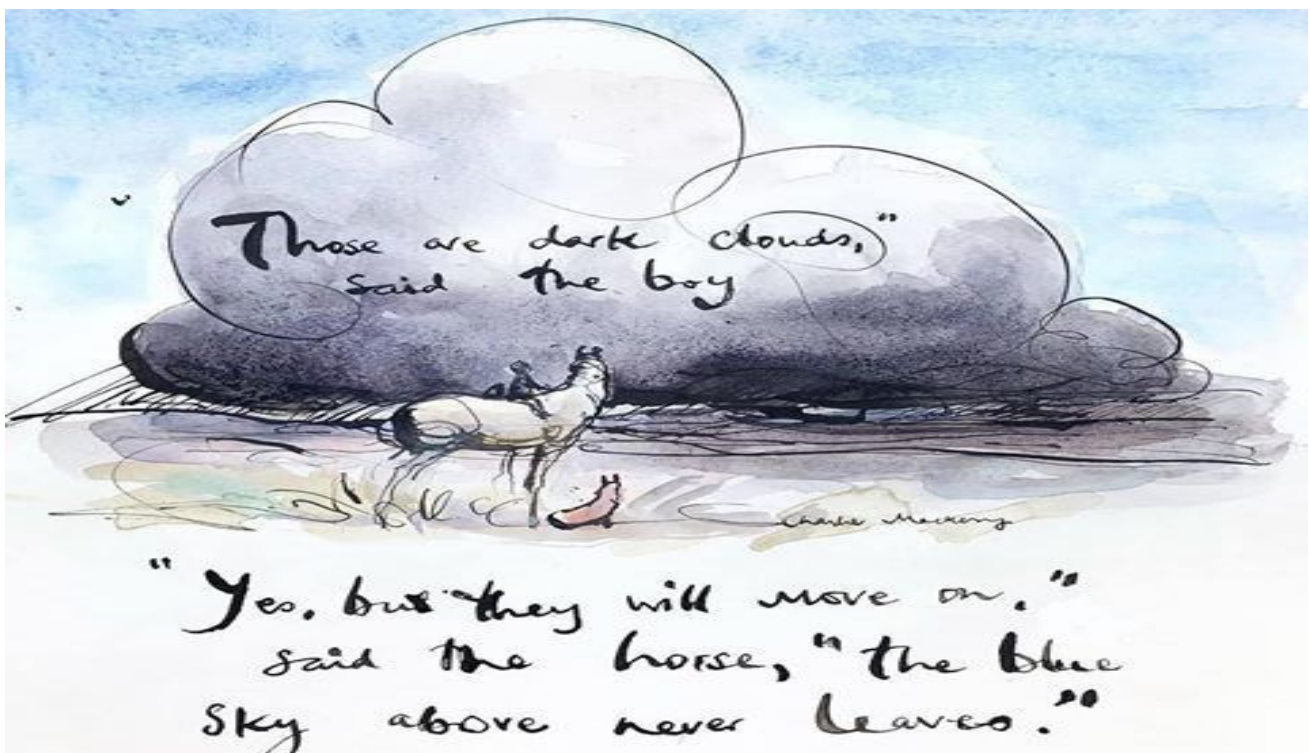 "Those are dark clouds,"
said the boy
Charlie Mackesy
"Yes, but they will move on,"
said the horse, "the blue
sky above never leaves."